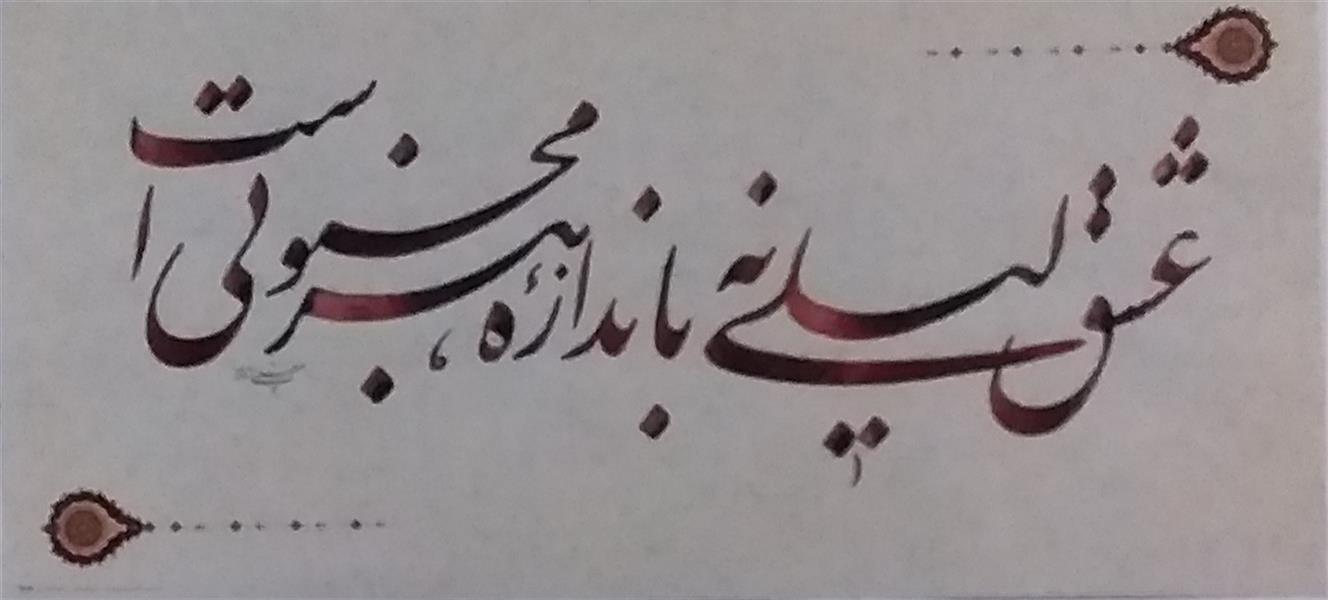 عشق لیلی نه باندازهٔ هر مجنونی است